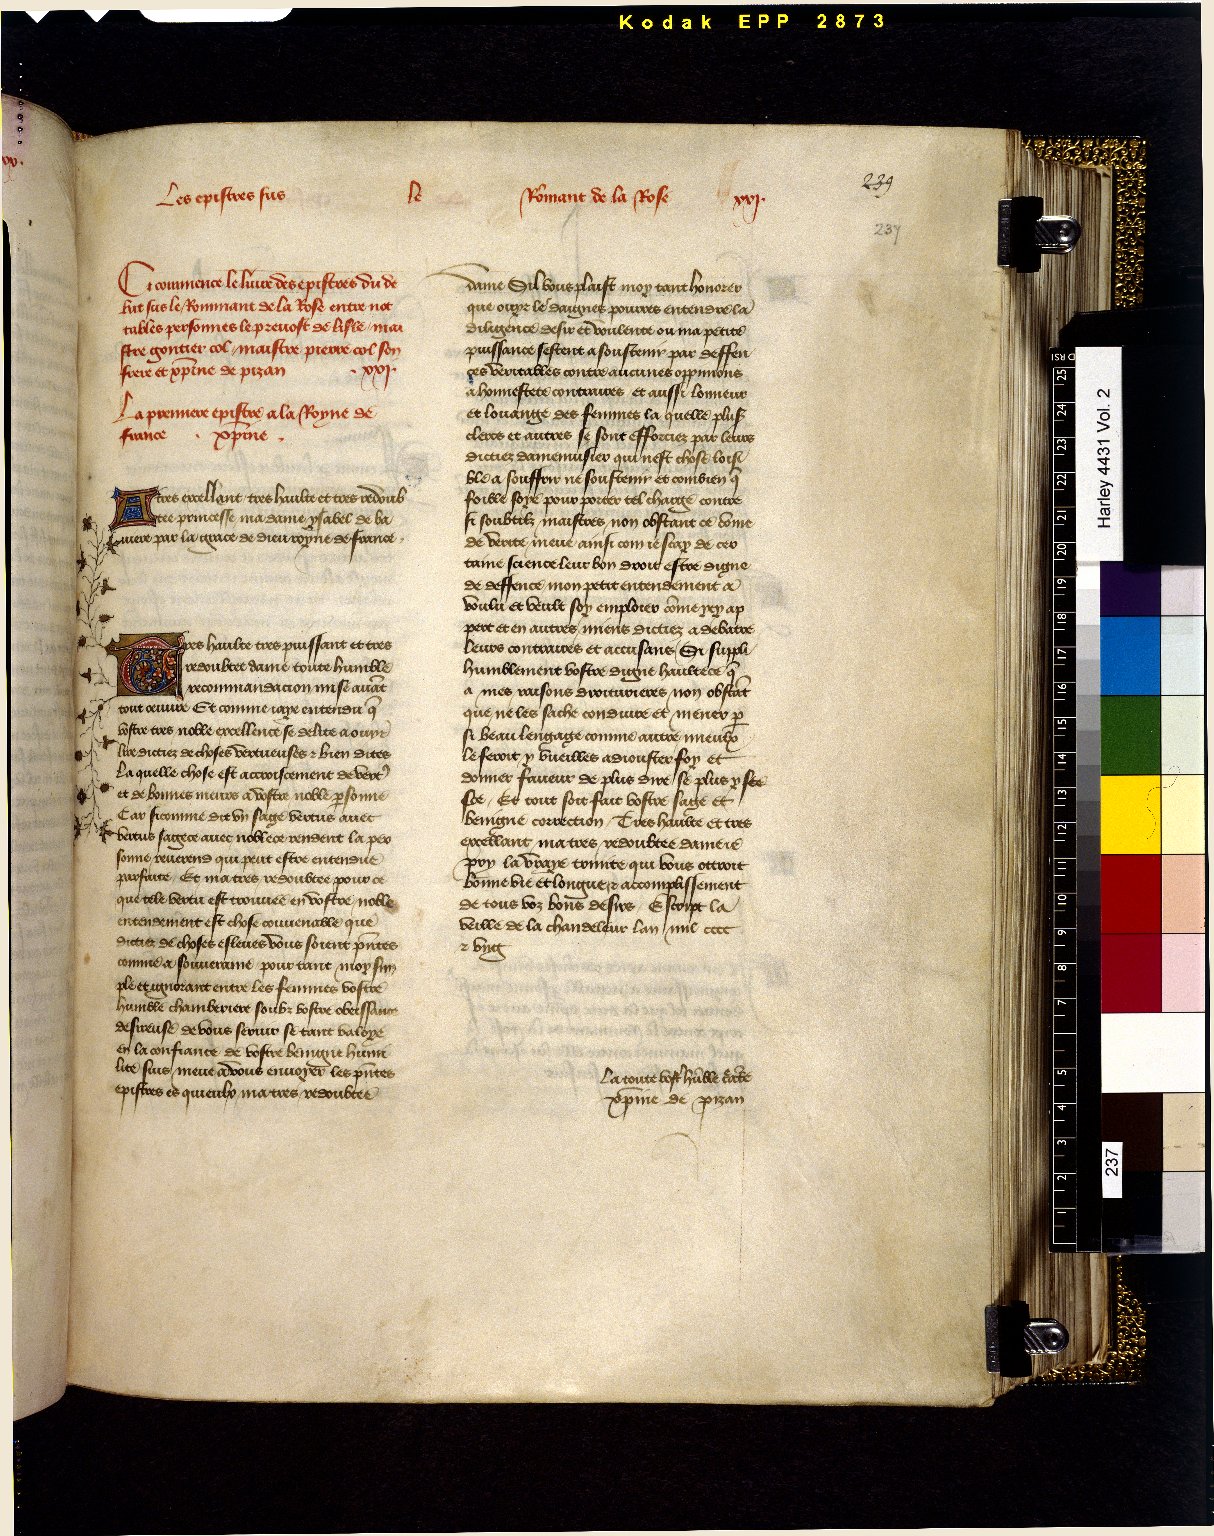 Kodak EPP 2873
Les epistres sus le Romant de la Rose xxj.
239
237
Ci commence le livre des epistres du de
bat sus le Rommant de la Rose entre not
tables personnes le prevost de lisle mai
stre gontier col maistre pierre col son
frere et xp̄ine de pizan . xxj.
La premiere epistre a la Royne de
france . xp̄ine .
A tres excellant tres haulte et tres redoub
tee princesse ma dame ysabel de ba
viere par la grace de dieu royne de france .
Tres haulte tres puissant et tres
redoubtee dame toute humble
recommandacion mise avāt
tout oeuvre Et comme iaye entendu q̄
vostre tres noble excellence se delite a ouyr
lire dictiez de choses vertueuses ⁊ bien dites
La quelle chose est accroiscement de vert9
et de bonnes meurs a vostre noble p̄sonne
Car sicomme dit vn sage vertus avec
vertus sagece avec noblece rendent la per
sonne reverend qui peut estre entendue
parfaite . Et ma tres redoubtee pour ce
que tele vertu est trouvee en vostre noble
entendement est chose couvenable que
dictiez de choses esleues vous soient p̄ntes
comme a souveraine pour tant moy sim
ple et ignorant entre les femmes vostre
humble chamberiere soubz vostre obeissance
desireuse de vous servir se tant valoye
en la confiance de vostre benigne humi
lite suis meue a vous envoyer les p̄ntes
epistres es quieulx ma tres redoubtee
dame Sil vous plaist moy tant honorer
que ouyr le daignes pourres entendre la
diligence desir et voulente ou ma petite
puissance sestent a soustenir par deffen
ces veritables contre aucunes oppinions
a honnestete contraires et aussi lonneur
et louange des femmes la quelle plus̄
clercs et autres se sont efforciez par leurs
dictiez damenuisier qui nest chose loisi
ble a souffrir ne soustenir et combien q̄
foible soye pour porter tel charge contre
si soubtilz maistres non obstant ce cōme
de verite meue ainsi com ie scay de cer
taine science leur bon droit estre digne
de deffence mon petit entendement a
voulu et veult soy emploier cōme ycy ap
pert et en autres miens dictiez a debatre
leurs contraires et accusans Si suppli
humblement vostre digne haultece q̄
a mes raisons droiturieres non obstāt
que ne les sache conduire et mener p̄
si beau lengage comme autre mieulx
le feroit y vueilles adiouster foy et
donner faveur de plus dire se plus y sce
sce . Et tout soit fait vostre sage et
benigne correction . Tres haulte et tres
excellant ma tres redoubtee dame ie
pry la vraye trinite qui vous ottroit
bonne vie et longue ⁊ accomplissement
de tous voz bons desirs . Escript la
veille de la chandeleur lan mil cccc
⁊ vng
La toute vost̄ hūble c̄ābe
xp̄ine de pizan
Harley 4431 Vol. 2
25
24
23
22
21
20
19
18
17
16
15
14
13
12
11
10
9
8
7
6
5
4
3
2
1
237